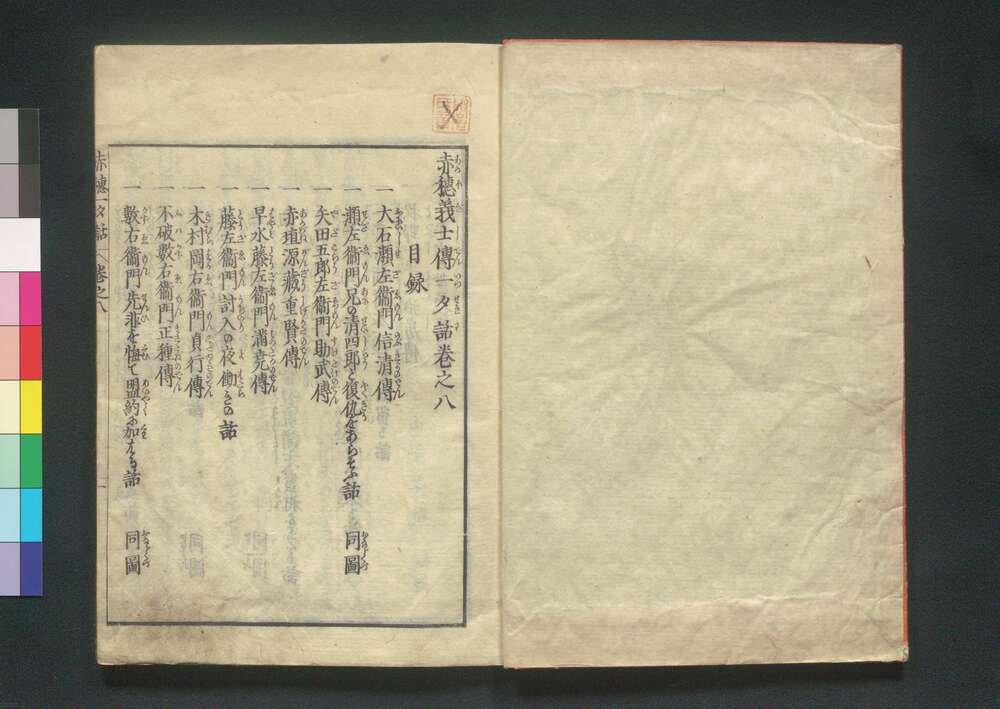 赤穗義士傳一夕話卷之八
目録
一 大石瀬左衞門信清傳
一 瀬左衞門兄の清四郎と復仇をあらそふ話 同圖
一 矢田五郎左衞門助武傳
一 赤埴源藏重賢傳
一 早水藤左衞門滿尭傳
一 藤左衞門討入の夜働きの話
一 木村岡右衞門貞行傳
一 不破數右衞門正種傳
一 數右衞門先非を悔て盟約に加はる話 同圖
赤穗一夕話 卷之八 一